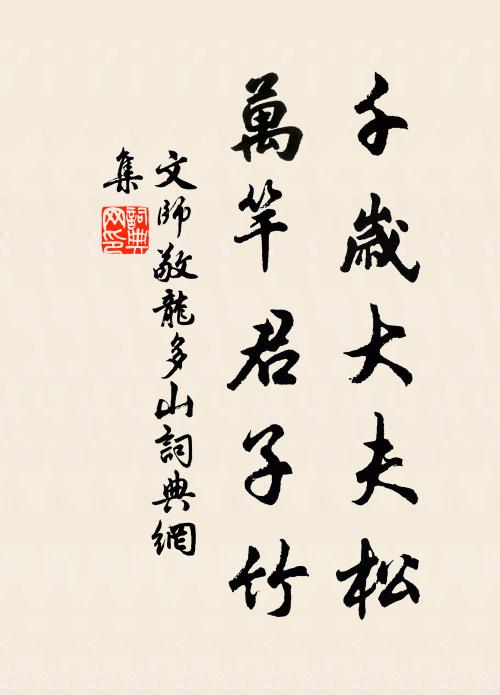 千歲大夫松
萬竿君子竹
文師敬龍多山詞典網
集
詞典網印